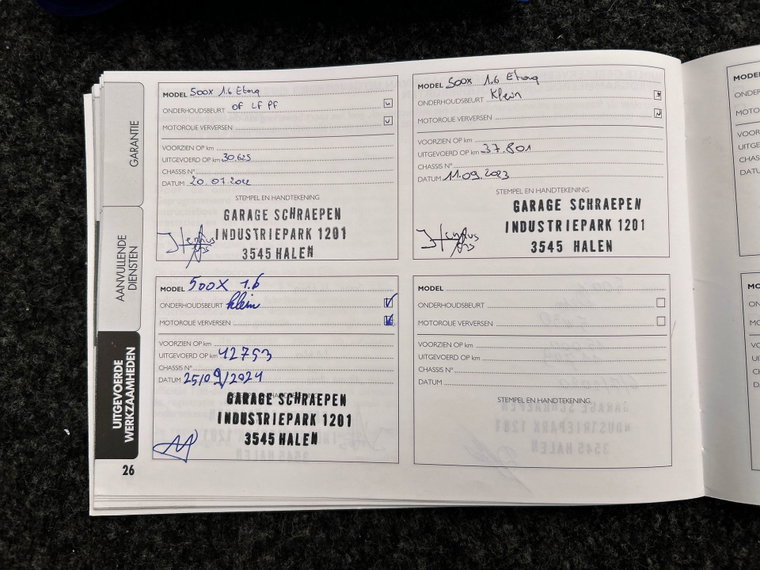 GARANTIE
AANVULLENDE
DIENSTEN
UITGEVOERDE
WERKZAAMHEDEN
26
MODEL 500X 1.6 Etorq
ONDERHOUDSBEURT OF LF PF
MOTOROLIE VERVERSEN
VOORZIEN OP km
UITGEVOERD OP km 30.625
CHASSIS N°
DATUM 20.07.2022
STEMPEL EN HANDTEKENING
GARAGE SCHRAEPEN
INDUSTRIEPARK 1201
3545 HALEN
MODEL 500X 1.6 Etorq
ONDERHOUDSBEURT Klein
MOTOROLIE VERVERSEN
VOORZIEN OP km
UITGEVOERD OP km 37.801
CHASSIS N°
DATUM 11.09.2023
STEMPEL EN HANDTEKENING
GARAGE SCHRAEPEN
INDUSTRIEPARK 1201
3545 HALEN
MODEL 500X 1.6
ONDERHOUDSBEURT klein
MOTOROLIE VERVERSEN
VOORZIEN OP km
UITGEVOERD OP km 42753
CHASSIS N°
DATUM 25/09/2024
GARAGE SCHRAEPEN
INDUSTRIEPARK 1201
3545 HALEN
MODEL
ONDERHOUDSBEURT
MOTOROLIE VERVERSEN
VOORZIEN OP km
UITGEVOERD OP km
CHASSIS N°
DATUM
STEMPEL EN HANDTEKENING